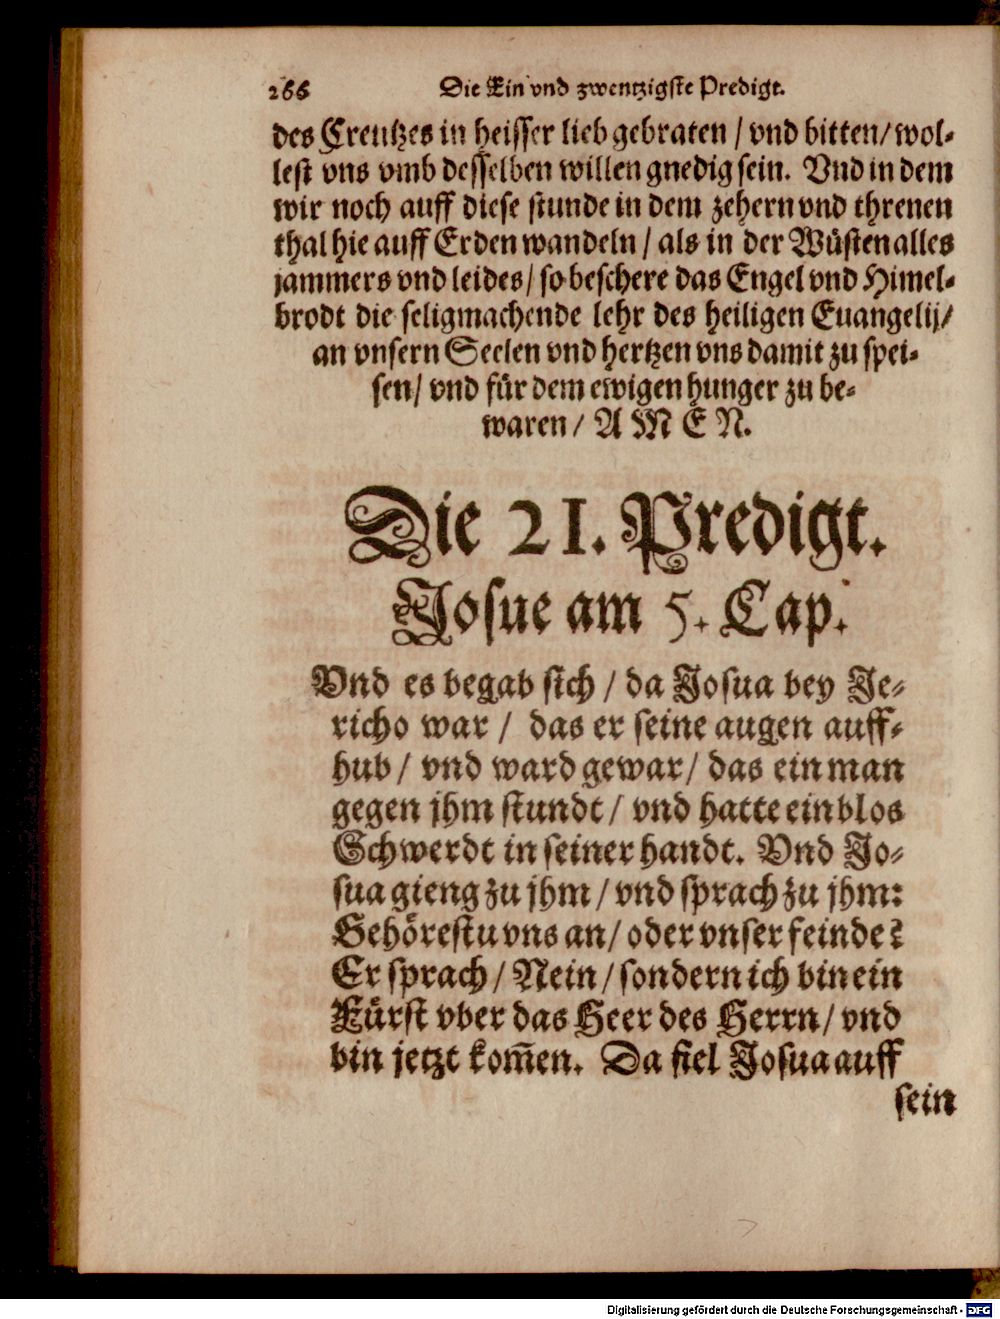 266 Die Ein vnd zwentzigste Predigt.
des Creutzes in heisser lieb gebraten / vnd bitten / wol-
lest vns vmb desselben willen gnedig sein. Vnd in dem
wir noch auff diese stunde in dem zehern vnd threnen
thal hie auff Erden wandeln / als in der Wüsten alles
jammers vnd leides / so beschere das Engel vnd Himel-
brodt die seligmachende lehr des heiligen Euangelij /
an vnsern Seelen vnd hertzen vns damit zu spei-
sen / vnd für dem ewigen hunger zu be-
waren / A M E N.
Die 21. Predigt.
Josue am 5. Cap.
Vnd es begab sich / da Josua bey Je-
richo war / das er seine augen auff-
hub / vnd ward gewar / das ein man
gegen jhm stundt / vnd hatte ein blos
Schwerdt in seiner handt. Vnd Jo-
sua gieng zu jhm / vnd sprach zu jhm:
Gehörestu vns an / oder vnser feinde?
Er sprach / Nein / sondern ich bin ein
Fürst vber das Heer des Herrn / vnd
bin jetzt kom̄en. Da fiel Josua auff
sein
Digitalisierung gefördert durch die Deutsche Forschungsgemeinschaft - DFG